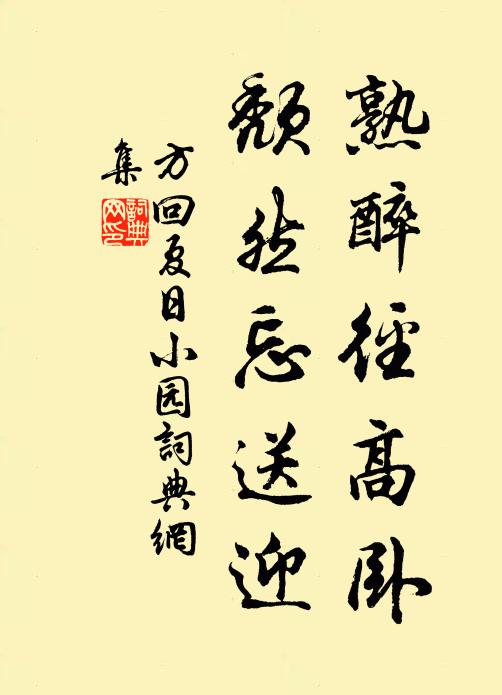 熟醉径高卧
頹然忘送迎
方回夏日小园詞典網
集
詞典
网印